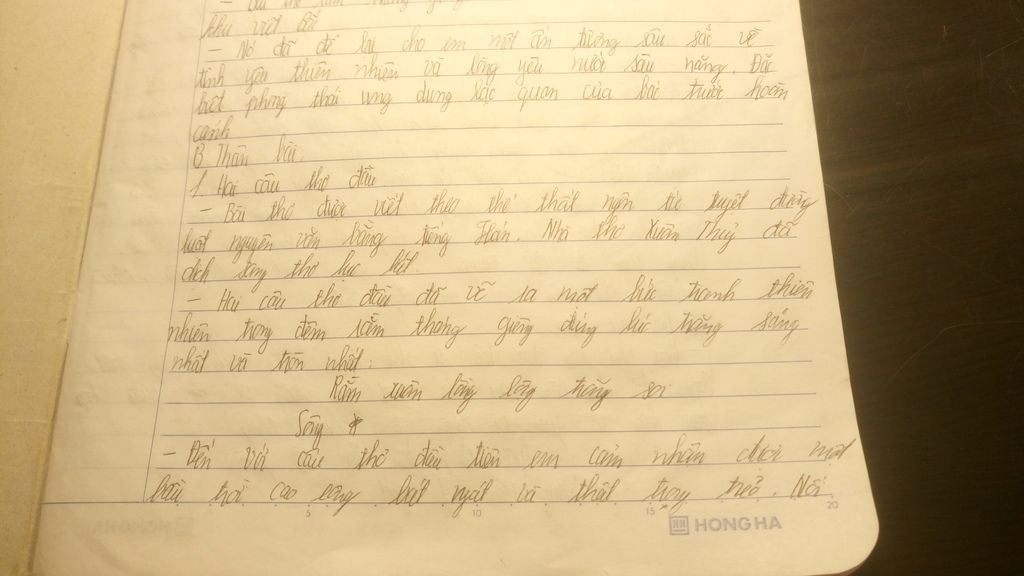 khu việt bắc
- Nó đã để lại cho em một ấn tượng sâu sắc về
tình yêu thiên nhiên và lòng yêu nước sâu nặng. Đặc
biệt phong thái ung dung lạc quan của bác trước hoàn
cảnh
B. Thân bài.
1. Hai câu thơ đầu.
- Bài thơ được viết theo thể thất ngôn tứ tuyệt đường
luật nguyên văn bằng tiếng Hán. Nhà thơ Xuân Thuỷ đã
dịch sang thơ lục bát.
- Hai câu thơ đầu đã vẽ ra một bức tranh thiên
nhiên trong đêm rằm tháng giêng đúng lúc trăng sáng
nhất và tròn nhất:
Rằm xuân lồng lộng trăng soi
Sông
- Đến với câu thơ đầu tiên em cảm nhận được một
bầu trời cao rộng bát ngát và thật trong trẻo. Nói
5 10 15 20
HONG HA